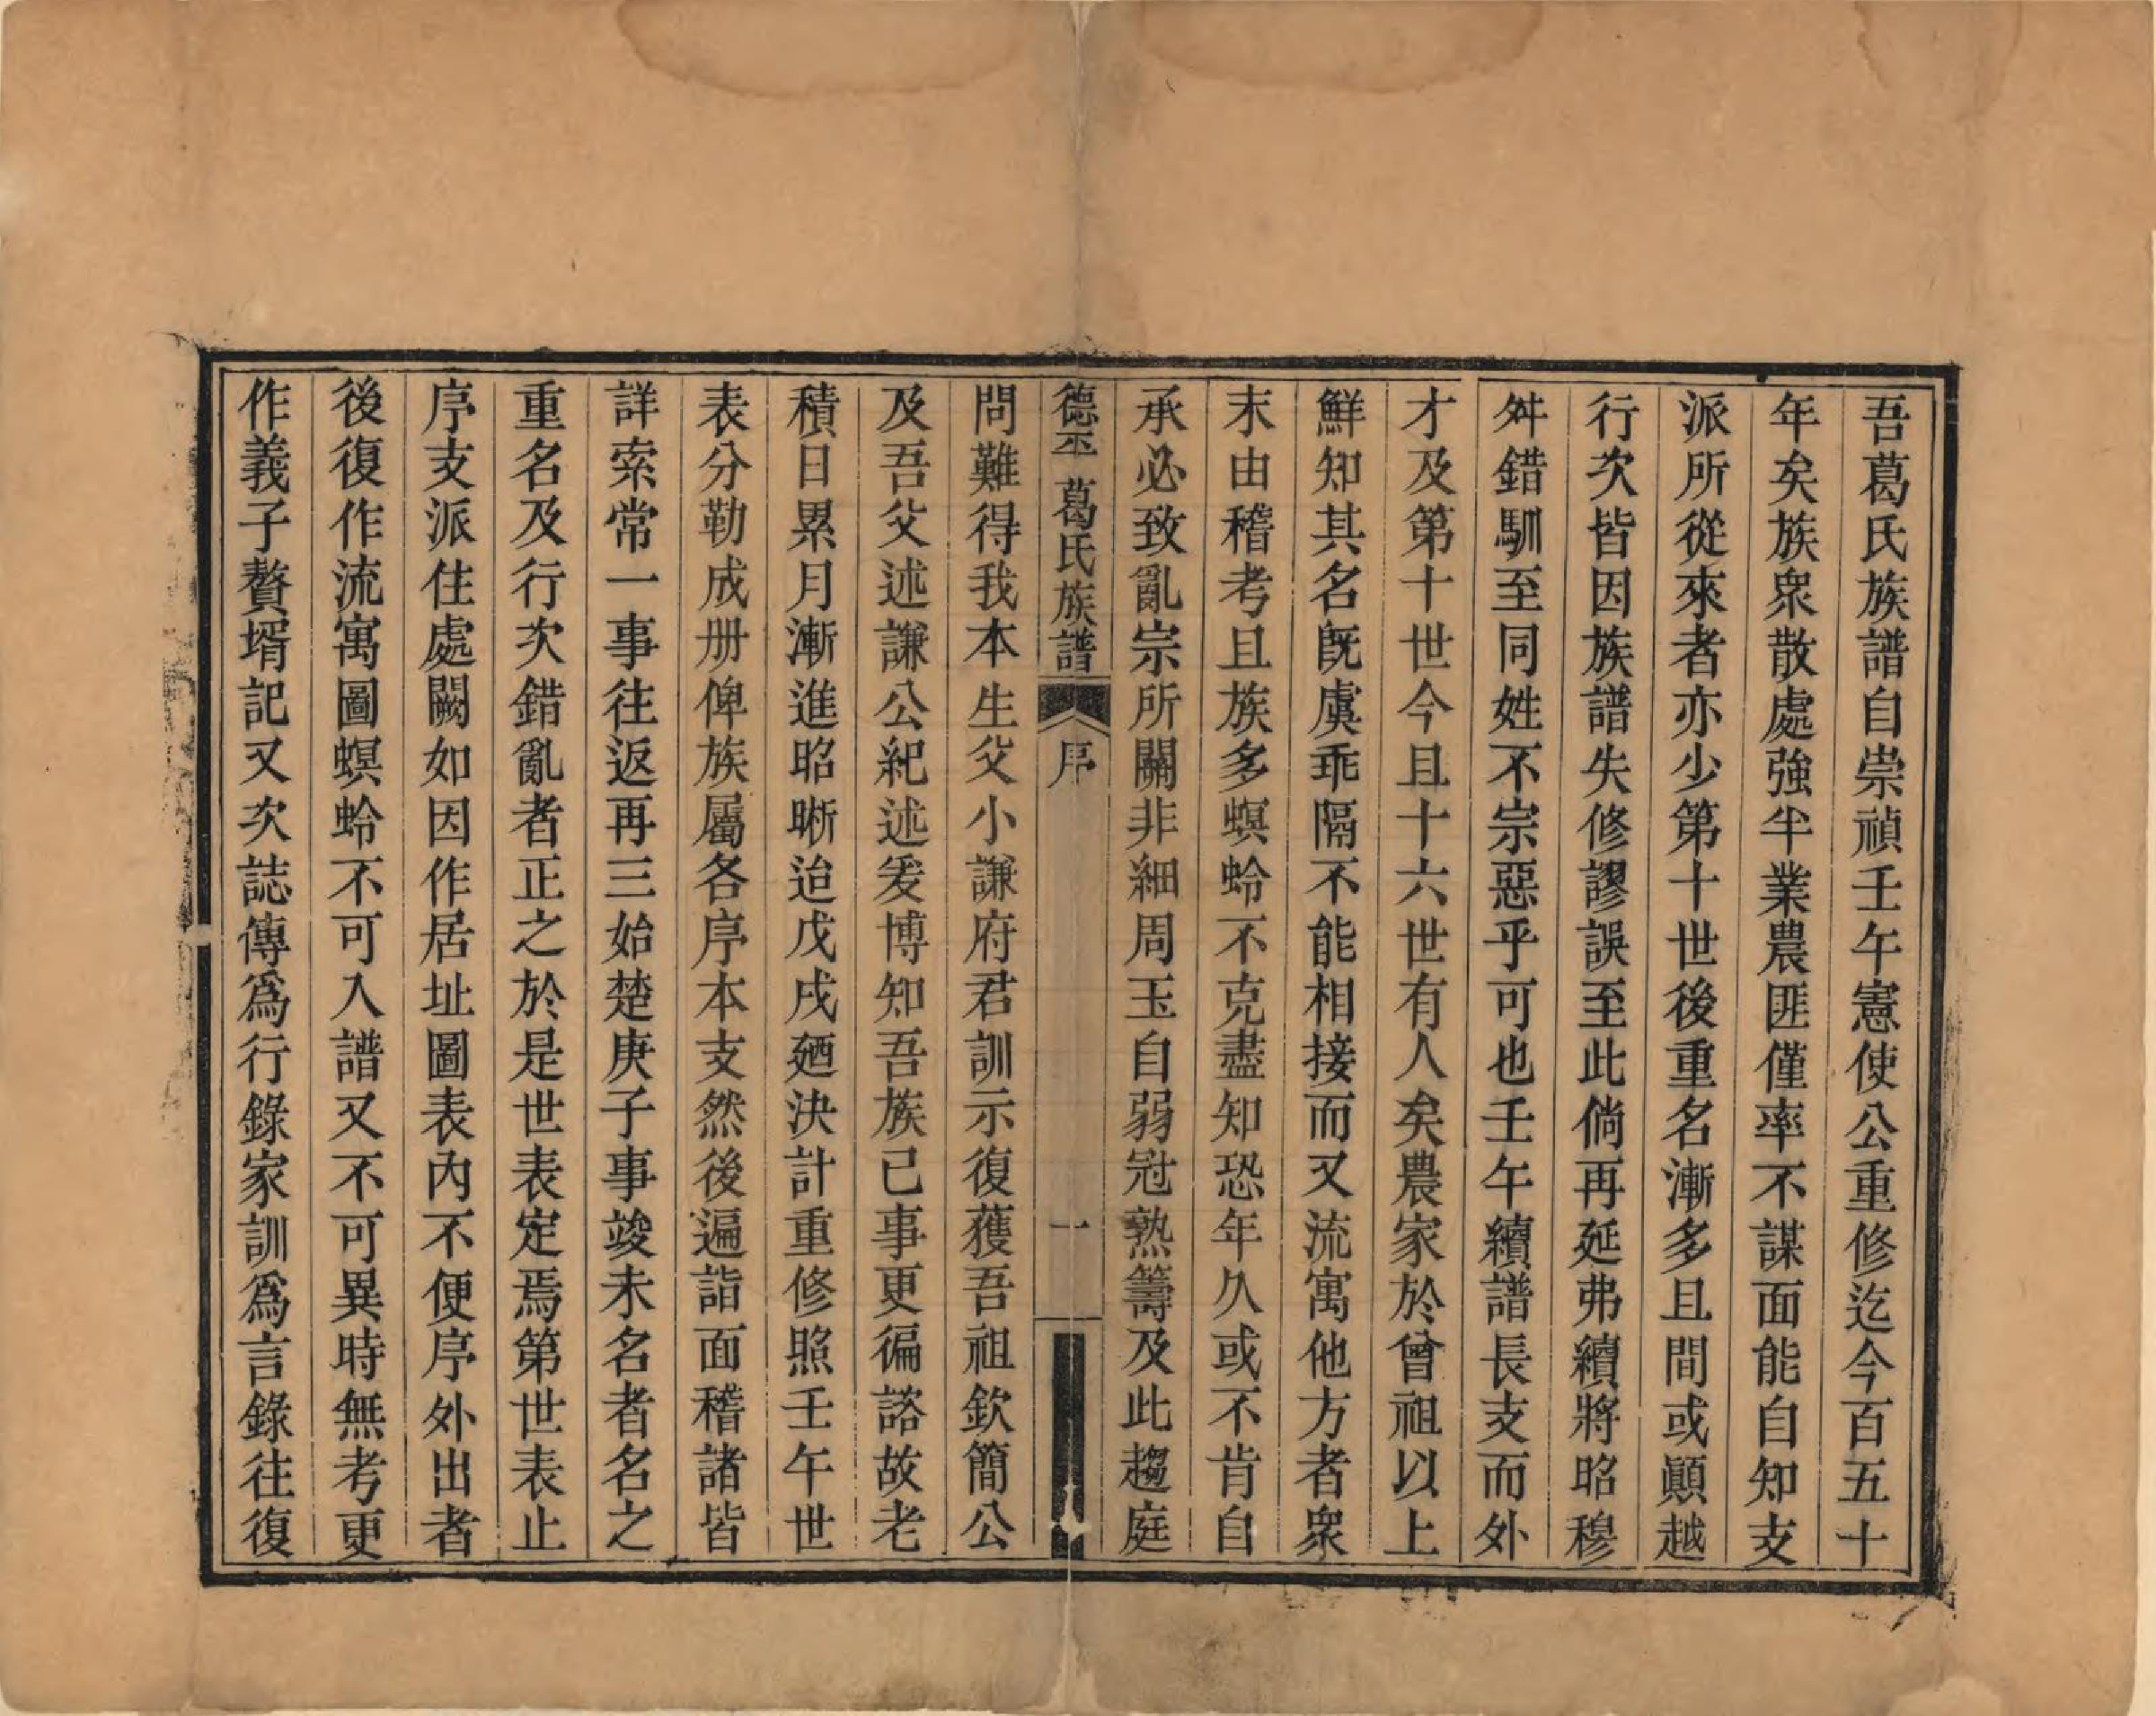 吾葛氏族譜自崇禎壬午憲使公重修迄今百五十
年矣族衆散處強半業農匪僅率不謀面能自知支
派所從來者亦少第十世後重名漸多且間或顚越
行次皆因族譜失修謬誤至此倘再延弗續將昭穆
舛錯馴至同姓不宗惡乎可也壬午續譜長支而外
才及第十世今且十六世有人矣農家於曾祖以上
鮮知其名旣虞乖隔不能相接而又流寓他方者衆
末由稽考且族多螟蛉不克盡知恐年久或不肯自
承必致亂宗所關非細周玉自弱冠熟籌及此趨庭
德平葛氏族譜 序 一
問難得我本生父小謙府君訓示復獲吾祖欽簡公
及吾父述謙公紀述爰博知吾族已事更徧諮故老
積日累月漸進昭晰迨戊戌廼決計重修照壬午世
表分勒成册俾族屬各序本支然後遍詣面稽諸皆
詳索常一事往返再三始楚庚子事竣未名者名之
重名及行次錯亂者正之於是世表定焉第世表止
序支派住處闕如因作居址圖表內不便序外出者
後復作流寓圖螟蛉不可入譜又不可異時無考更
作義子贅壻記又次誌傳爲行錄家訓爲言錄往復